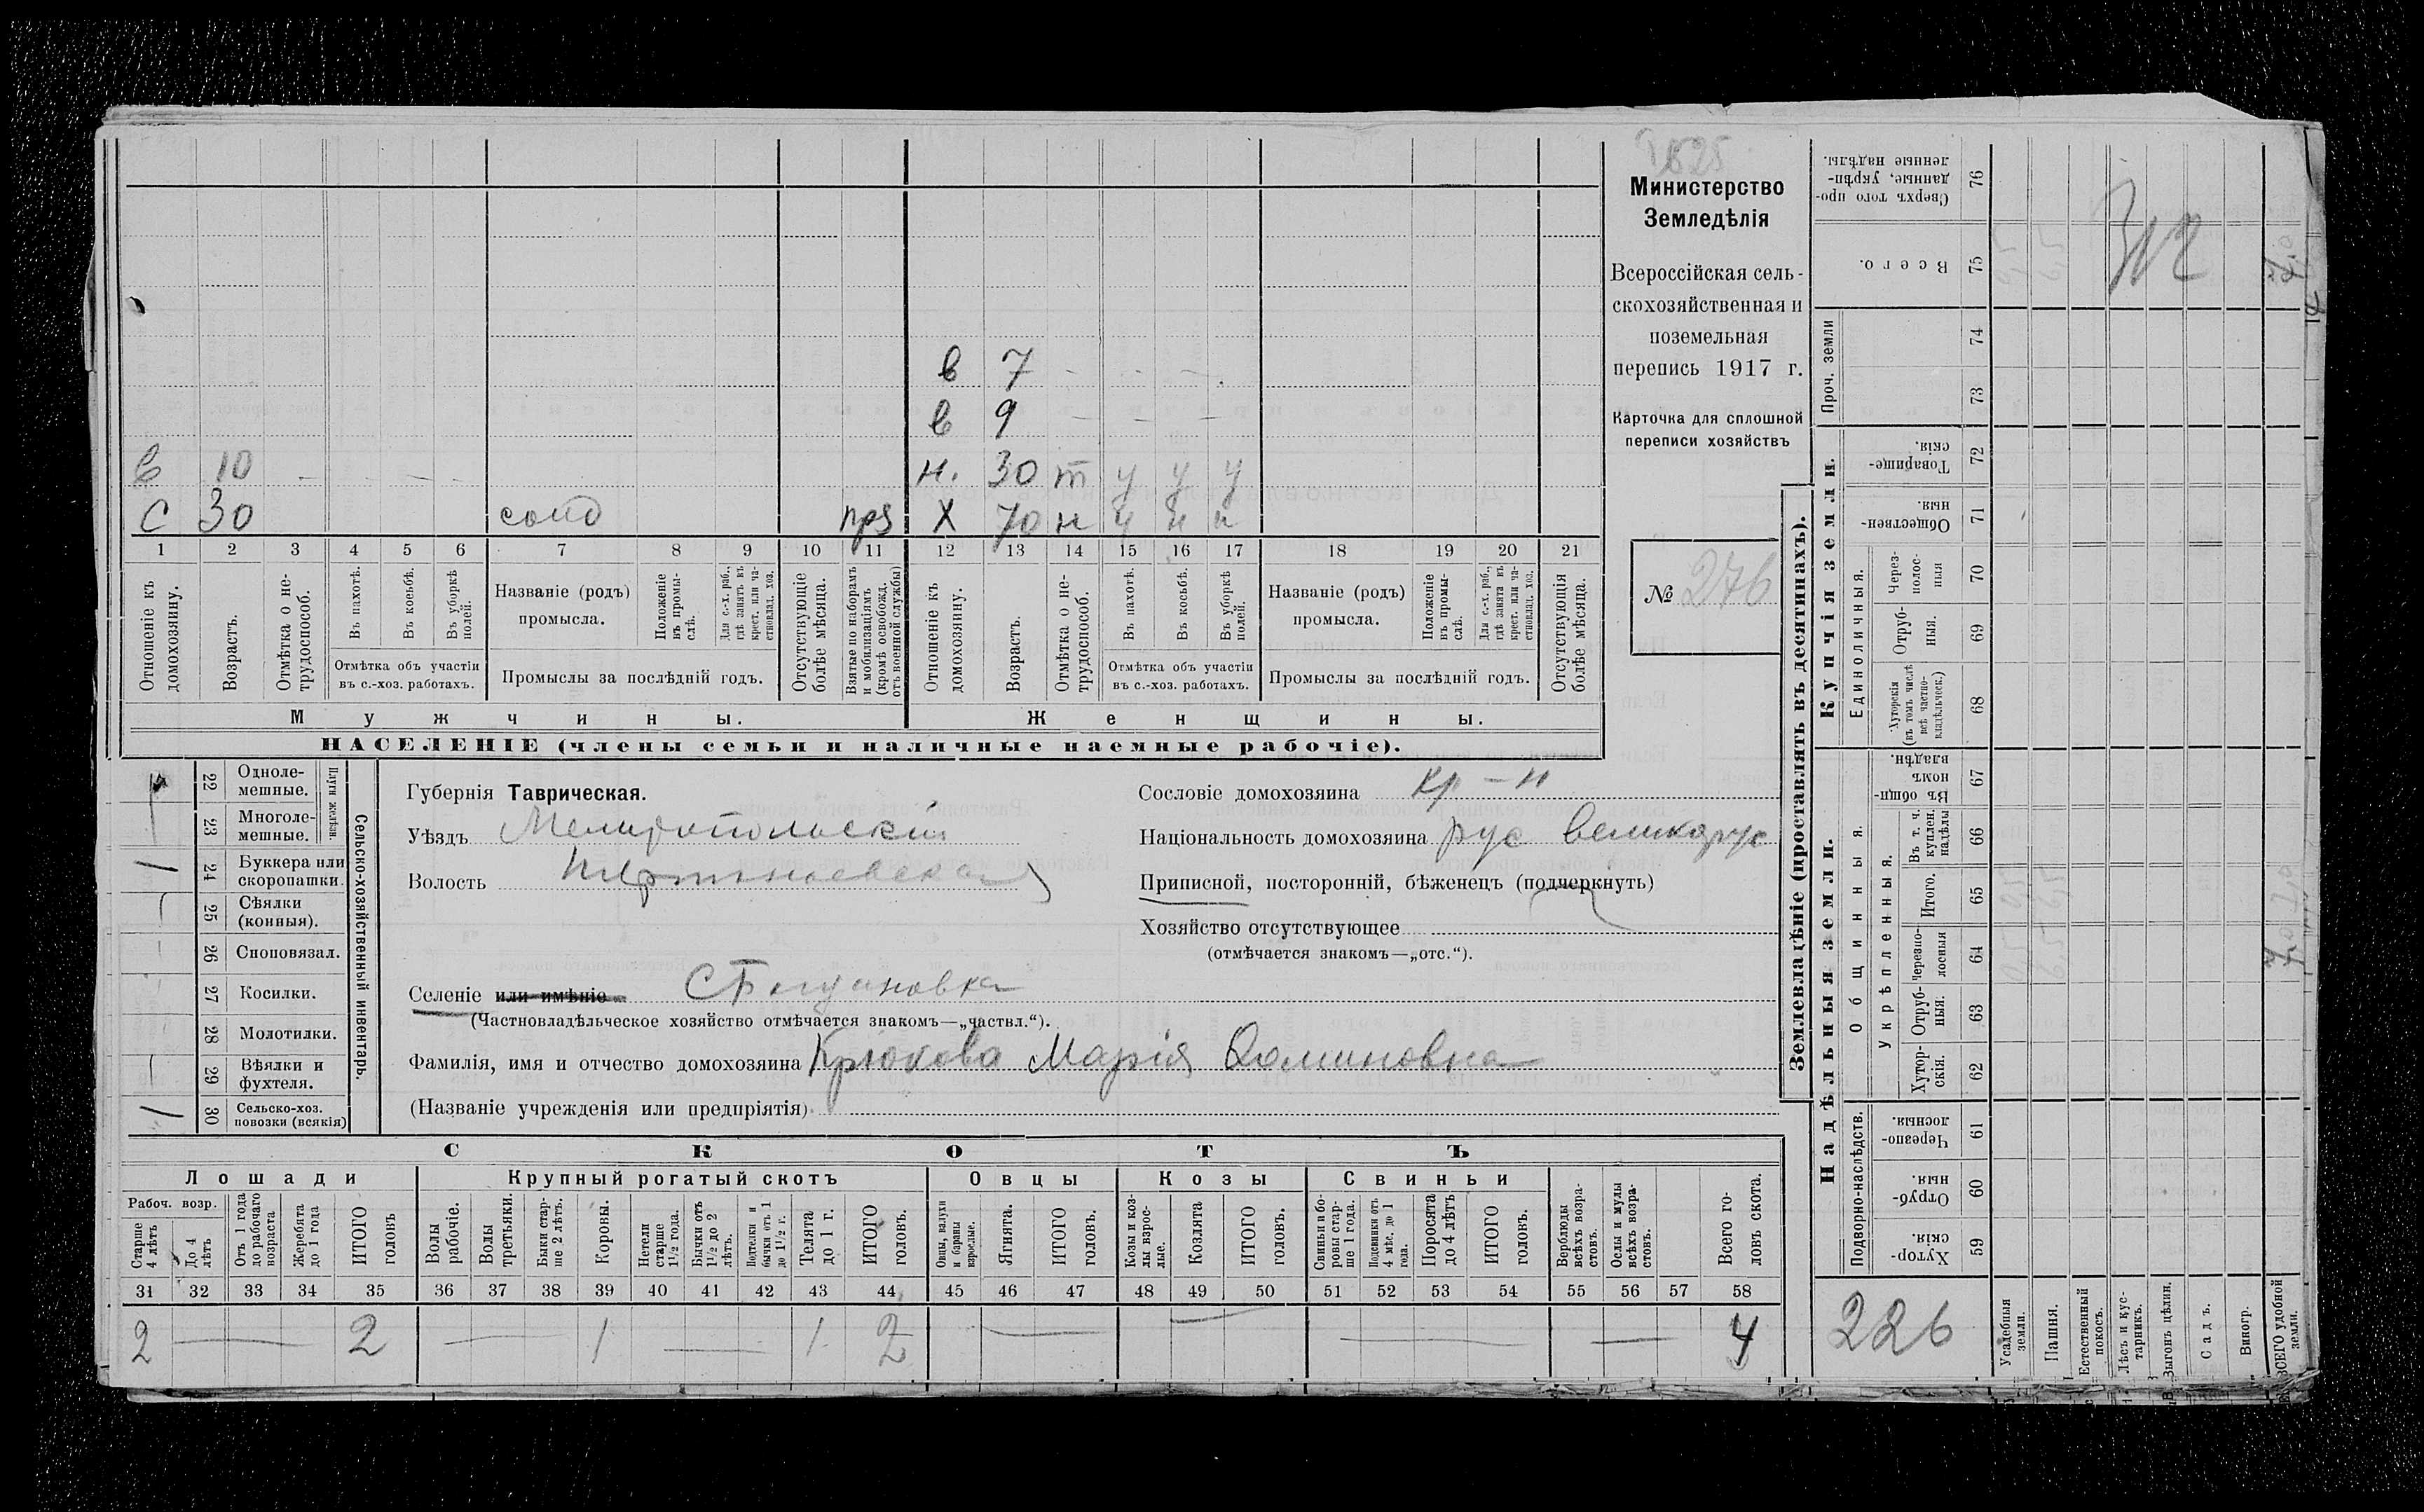 1625
Министерство
Земледѣлія
Всероссійская сель-
скохозяйственная и
поземельная
перепись 1917 г.
Карточка для сплошной
переписи хозяйствъ
№ 276
в 7
в 9
в 10 н. 30 т у у у
С 30 Х 70 н
1 2 3 4 5 6 7 8 9 10 11 12 13 14 15 16 17 18 19 20 21
Отношеніе къ домохозяину.
Возрастъ.
Отмѣтка о не-трудоспособ.
Въ пахотѣ.
Въ косьбѣ.
Въ уборкѣ полей.
Отмѣтка объ участіи
въ с.-хоз. работахъ.
Названіе (родъ)
промысла.
Положеніе въ промы-слѣ.
Для с.-х. раб., гдѣ занятъ въ крест. или ча-стновлад. хоз.
Промыслы за послѣдній годъ.
Отсутствующіе болѣе мѣсяца.
Взятые по наборамъ и мобилизаціямъ (кромѣ освобожд. отъ военной службы)
Отношеніе къ домохозяину.
Возрастъ.
Отмѣтка о не-трудоспособ.
Въ пахотѣ.
Въ косьбѣ.
Въ уборкѣ полей.
Отмѣтка объ участіи
въ с.-хоз. работахъ.
Названіе (родъ)
промысла.
Положеніе въ промы-слѣ.
Для с.-х. раб., гдѣ занята въ крест. или ча-стновлад. хоз.
Промыслы за послѣдній годъ.
Отсутствующія болѣе мѣсяца.
Мужчины. Женщины.
НАСЕЛЕНІЕ (члены семьи и наличные наемные рабочіе).
Сельско-хозяйственный инвентарь.
Плуги желѣзн.
22 Одноле-мешные.
23 Многоле-мешные.
24 Буккера или скоропашки.
25 Сѣялки (конныя).
26 Сноповязал.
27 Косилки.
28 Молотилки.
29 Вѣялки и фухтеля.
30 Сельско-хоз. повозки (всякія)
Губернія Таврическая.
Уѣздъ Мелитопольскій
Волость
Селеніе или имѣніе С Богдановка
(Частновладѣльческое хозяйство отмѣчается знакомъ—„частвл.“).
Фамилія, имя и отчество домохозяина Крюкова Марія
(Названіе учрежденія или предпріятія)
Сословіе домохозяина кр-н
Національность домохозяина рус великорус
Приписной, посторонній, бѣженецъ (подчеркнуть)
Хозяйство отсутствующее
(отмѣчается знакомъ—„отс.“).
СКОТЪ
Лошади Крупный рогатый скотъ Овцы Козы Свиньи
Рабоч. возр.
Старше 4 лѣтъ
До 4 лѣтъ
Отъ 1 года до рабочаго возраста
Жеребята до 1 года
ИТОГО головъ
Волы рабочіе.
Волы третьяки.
Быки стар-ше 2 лѣтъ.
Коровы.
Нетели старше 1½ года.
Бычки отъ 1½ до 2 лѣтъ.
Подтелки и бычки отъ 1 до 1½ г.
Телята до 1 г.
ИТОГО головъ.
Овцы, валухи и бараны взрослые.
Ягнята.
ИТОГО головъ.
Козы и коз-лы взрос-лые.
Козлята
ИТОГО головъ.
Свиньи и бо-ровы стар-ше 1 года.
Подсвинки отъ 4 мѣс. до 1 года.
Поросята до 4 лѣтъ
ИТОГО головъ.
Верблюды всѣхъ возра-стовъ.
Ослы и мулы всѣхъ возра-стовъ.
Всего го-ловъ скота.
31 32 33 34 35 36 37 38 39 40 41 42 43 44 45 46 47 48 49 50 51 52 53 54 55 56 57 58
2 2 1 1 2 4
Землевладѣніе (проставлять въ десятинахъ).
Надѣльныя земли.
Купчія земли.
Проч. земли
Подворно-наслѣдств.
Общинныя.
Укрѣпленныя.
Единоличныя.
Сверхъ того про-данные, укрѣп-ленные надѣлы. 76
Всего. 75
74
73
Товарище-скія. 72
Обществен-ныя. 71
Через-полос-ныя 70
Отруб-ныя. 69
Хуторскія (въ томъ числѣ всѣ частно-владѣльческ.) 68
Въ общи-номъ владѣн. 67
Въ т. ч. куплен. надѣлы 66
Итого. 65
Черезпо-лосныя 64
Отруб-ныя. 63
Хутор-скія. 62
Черезпо-лосныя. 61
Отруб-ныя. 60
Хутор-скія. 59
226
Усадебныя земли.
Пашня.
Естественный покосъ.
Лѣсъ и кус-тарникъ.
Выгонъ цѣлин.
Садъ.
Виногр.
ВСЕГО удобной земли.